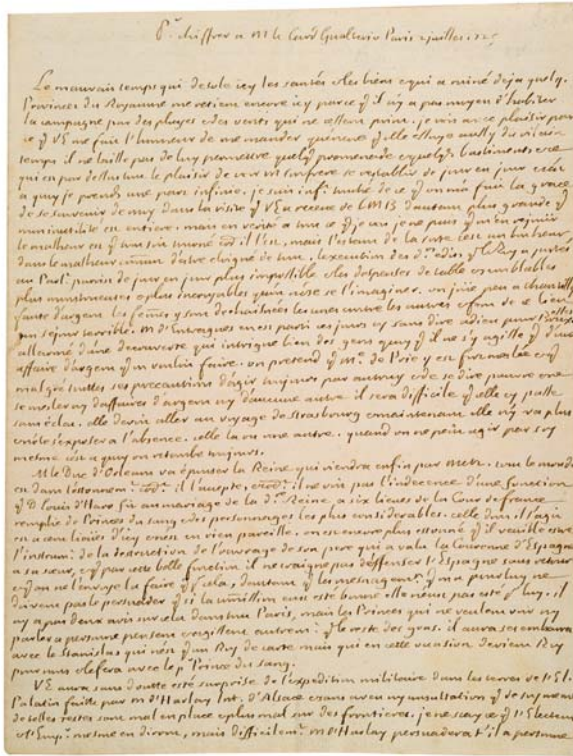 Pr chiffrer a Mr le Card Gualterio Paris 2 juillet 1725
Le mauvais temps qui desole icy les santés et les biens et qui a ruiné deja quelq.
Provinces du Royaume me retient encore icy parce qu'il n'y a pas moyen d'habiter
la campagne par des pluyes et des vents qui ne cessent point. je vois avec plaisir par
ce q VE me fait l'honneur de me mander qu'encore qu'elle essuye aussy du vilain
temps il ne laisse pas de luy permettre quelq promenade et quelq bastiments et ce
qui est par dessus tout le plaisir de voir M son frere se restablir de jour en jour
a quoy je prends une part infinie. je suis inft touché de ce q on m'a fait la grace
de se souvenir de moy dans la visite q VE a receue de LMB d'autant plus grande q
mon inutilité est entiere. mais en verité a tout ce q je vois je ne puis q m'en rejouir
le malheur en q tout soit tourné il l'est, mais l'estant de la sorte c'est un bonheur
dans le malheur commun d'estre eloigné de tout. l'execution des ds edits q le Roy a portés
au Parlt paroist de jour en jour plus impossible et les despenses de table et semblables
plus monstrueuses et plus incroyables qu'on n'ose se l'imaginer. on joue peu a chantilly
faute d'argent les femes y sont dechainées les unes contre les autres et font de ce lieu
un sejour terrible. M d'Entragues en est parti ces jours cy sans dire adieu pour Bruxelles
allarmé d'une decouverte qui intrigue bien des gens quoy q il ne s'y agisse q d'une
affaire d'argent q on vouloit faire. on pretend q Me de Prie y est fort meslée et q
malgré toutes ses precautions d'agir toujours par autruy et de se dire pauvre et ne
se mesler ny d'affaires d'argent ny d'aucune autre il sera difficile q elle s'y passe
sans eclat. elle devoit aller au voyage de strasbourg et maintenant elle n'y va plus
et n'ose s'exposer a l'absence. celle la ou une autre. quand on ne peut agir par soy
mesme c'est a quoy on retombe toujours.
M le Duc d'Orleans va épouser la Reine qui viendra enfin par Metz. tout le monde
est dans l'estonnemt il l'accepte, et il ne voit pas l'indecence d'une fonction
q D Louis d'Haro fit au mariage de la de Reine a six lieues de la Cour de france
remplie de Princes du sang et des personnages les plus considerables. celle dont il s'agit
est a cent lieues d'icy et n'est en rien pareille. on est encore plus estonné q il veuille estre
l'instrumt de la destruction de l'ouvrage de son pere qui a valu la Couronne d'Espagne
a sa sœur, et q par cette belle fonction il ne craigne pas d'offenser l'Espagne sans retour
et q on ne l'envoye la faire q p cela, d'autant q les menagemts q on a pour luy ne
doivent pas le persuader q si la commission eust esté bonne elle n'eust pas esté p luy. il
n'y a pas deux avis sur cela dans tout Paris, mais les Princes qui ne veulent voir ny
parler a personne pensent et agissent autremt q le reste des gens. il aura ses embarras
avec le Stanislas qui n'est q un Roy de carte mais qui en cette occasion devient Roy
pour nous et le fera avec le pr Prince du sang.
VE aura sans doutte esté surprise de l'expedition militaire dans les terres de l'El.
Palatin faitte par M d'Harlay Int. d'Alsace et sans aveu ny consultation q de soy mesme
de telles testes sont mal en place et plus mal sur des frontieres. je ne scay ce q l'Electeur
et l'Empr mesme en diront, mais difficilemt M d'Harlay persuadera t'il a personne